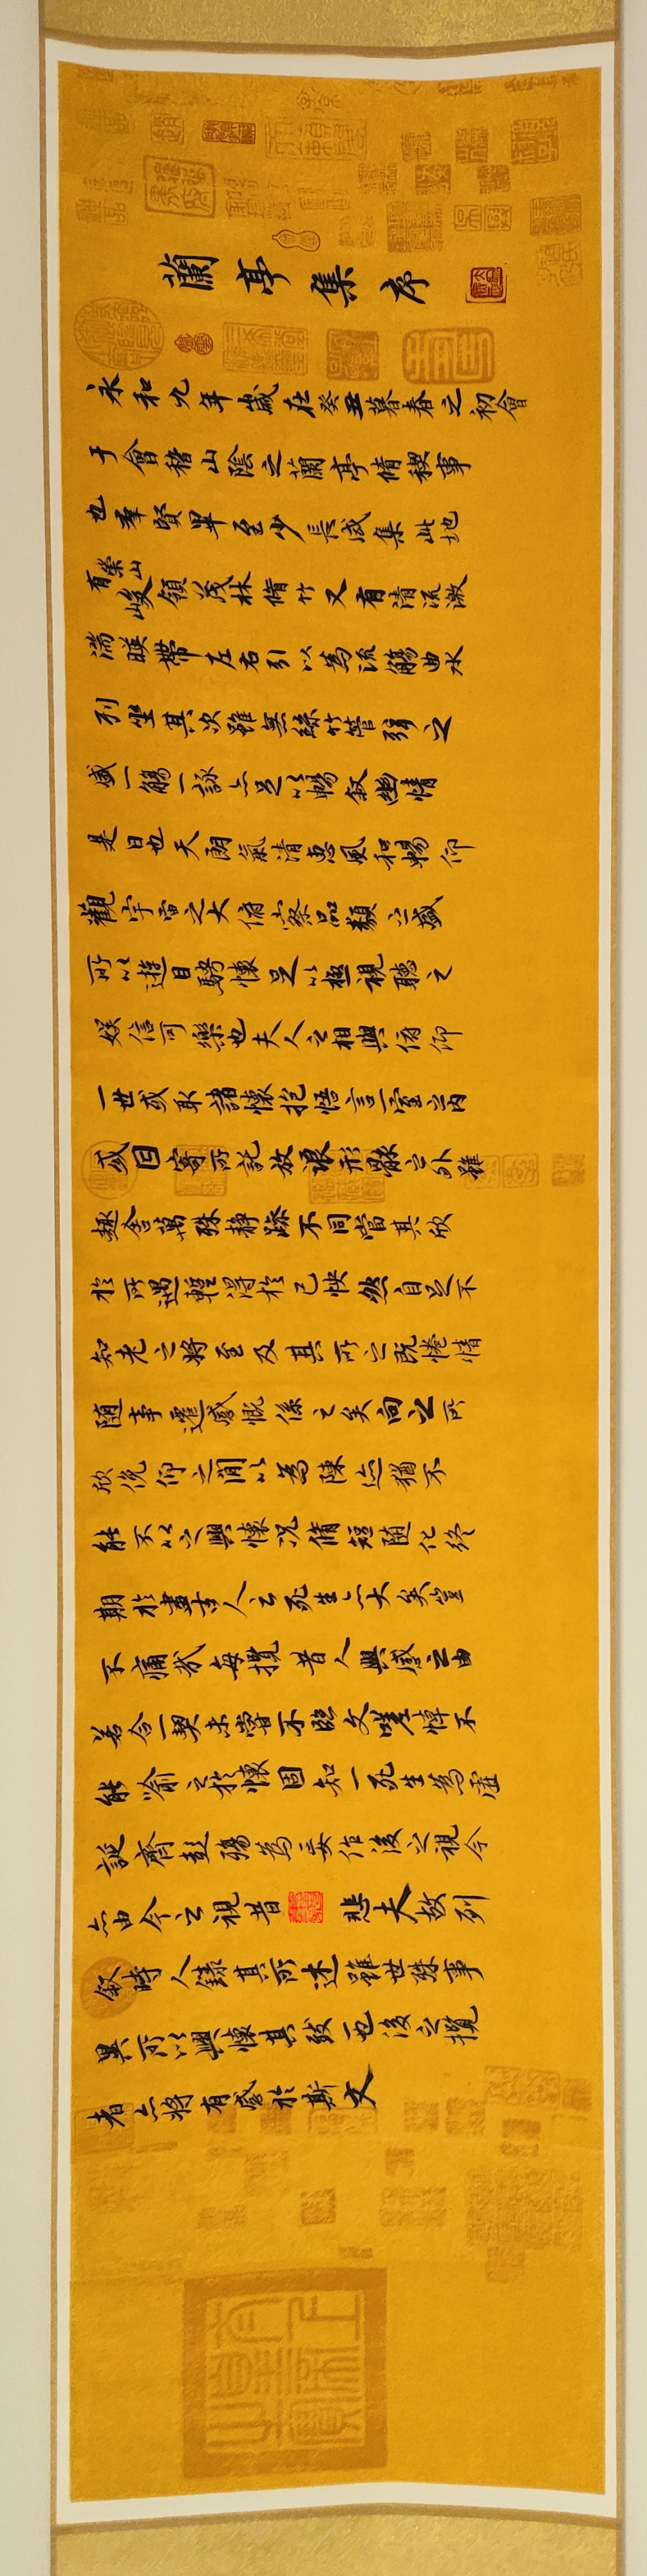 蘭亭集序
永和九年歲在癸丑暮春之初會
于會稽山陰之蘭亭脩稧事
也羣賢畢至少長咸集此地
有崇山峻領茂林脩竹又有清流激
湍暎帶左右引以為流觴曲水
列坐其次雖無絲竹管弦之
盛一觴一詠亦足以暢敘幽情
是日也天朗氣清惠風和暢仰
觀宇宙之大俯察品類之盛
所以遊目騁懷足以極視聽之
娛信可樂也夫人之相與俯仰
一世或取諸懷抱悟言一室之內
或因寄所託放浪形骸之外雖
趣舍萬殊靜躁不同當其欣
於所遇暫得於己怏然自足不
知老之將至及其所之既惓情
隨事遷感慨係之矣向之所
欣俛仰之閒以為陳迹猶不
能不以之興懷況脩短隨化終
期於盡古人云死生亦大矣豈
不痛哉每攬昔人興感之由
若合一契未嘗不臨文嗟悼不
能喻之於懷固知一死生為虛
誕齊彭殤為妄作後之視今
亦由今之視昔 悲夫故列
敘時人錄其所述雖世殊事
異所以興懷其致一也後之攬
者亦將有感於斯文